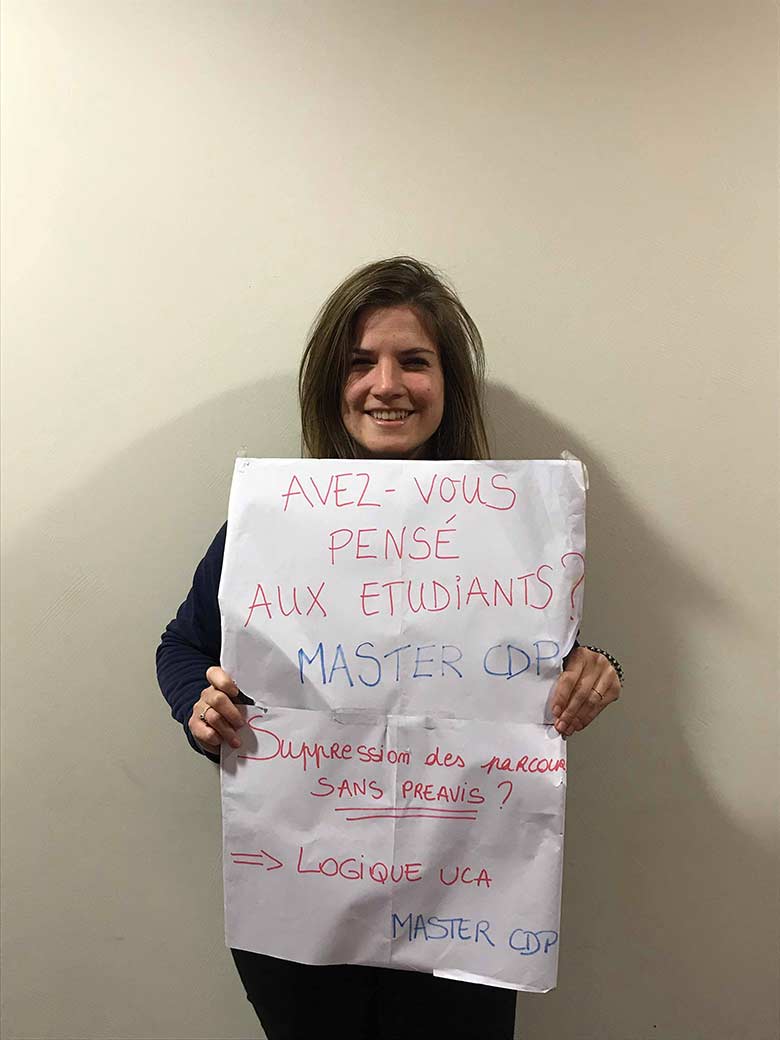 AVEZ-VOUS
PENSÉ
AUX ETUDIANTS?
MASTER CDP
Suppression des parcour
SANS PREAVIS ?
=> LOGIQUE UCA
MASTER CDP